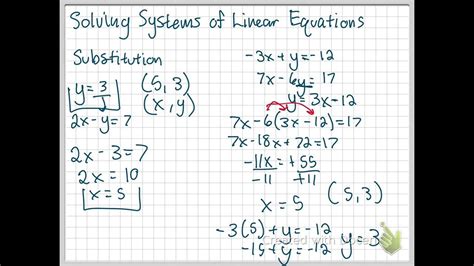 Solving Systems of Linear Equations
Substitution
y = 3
(5, 3)
(x, y)
2x - y = 7
2x - 3 = 7
2x = 10
x = 5
-3x + y = -12
7x - 6y = 17
y = 3x - 12
7x - 6(3x - 12) = 17
7x - 18x + 72 = 17
-11x = +55
-11 +11
x = 5
(5, 3)
-3(5) + y = -12
-15 + y = -12
y = 3
Created with